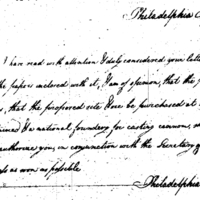 Philadelphia
I have read with attention & duly considered your lette
the papers inclosed with it, I am of opinion, that the
, that the proferred site be purchased at
a national foundery for casting cannon,
authorise you, in conjunction with the Secretary
as soon as possible
Philadelphia